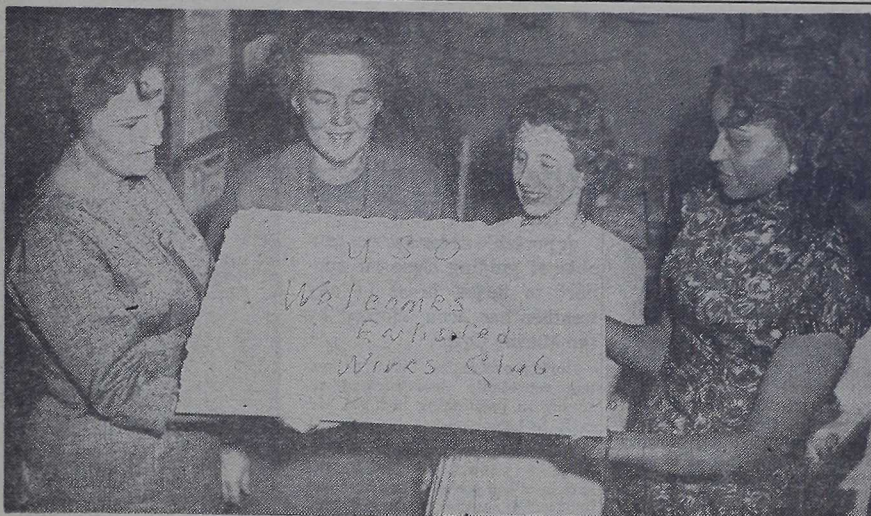 USO
Welcomes
Enlisted
Wives Club